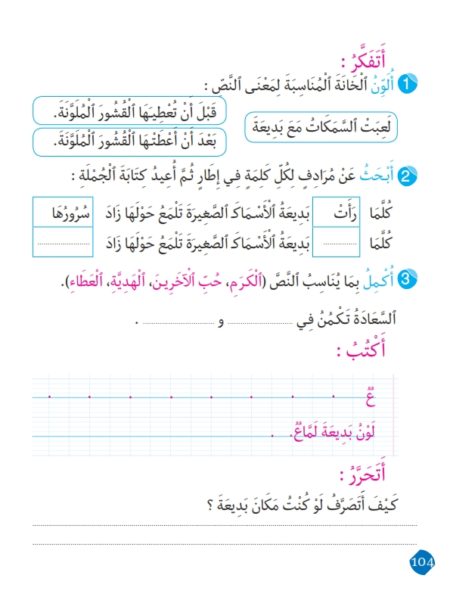 أَتَفَكَّرُ :
1 أُلَوِّنُ ٱلْخَانَةَ ٱلْمُنَاسِبَةَ لِمَعْنَى ٱلنَّصِّ :
لَعِبَتْ ٱلسَّمَكَاتُ مَعَ بَدِيعَةَ
قَبْلَ أَنْ تُعْطِيَهَا ٱلْقُشُورَ ٱلْمُلَوَّنَةَ.
بَعْدَ أَنْ أَعْطَتْهَا ٱلْقُشُورَ ٱلْمُلَوَّنَةَ.
2 أَبْحَثُ عَنْ مُرَادِفٍ لِكُلِّ كَلِمَةٍ فِي إِطَارٍ ثُمَّ أُعِيدُ كِتَابَةَ ٱلْجُمْلَةِ :
كُلَّمَا رَأَتْ بَدِيعَةُ ٱلْأَسْمَاكَ ٱلصَّغِيرَةَ تَلْمَعُ حَوْلَهَا زَادَ سُرُورُهَا
كُلَّمَا ............ بَدِيعَةُ ٱلْأَسْمَاكَ ٱلصَّغِيرَةَ تَلْمَعُ حَوْلَهَا زَادَ ............
3 أُكْمِلُ بِمَا يُنَاسِبُ ٱلنَّصَّ (ٱلْكَرَمِ، حُبِّ ٱلْآخَرِينَ، ٱلْهَدِيَّةِ، ٱلْعَطَاءِ).
ٱلسَّعَادَةُ تَكْمُنُ فِي .................. و .................. .
أَكْتُبُ :
عٌ . . . . . . . .
لَوْنُ بَدِيعَةَ لَمَّاعٌ. .
أَتَحَرَّرُ :
كَيْفَ أَتَصَرَّفُ لَوْ كُنْتُ مَكَانَ بَدِيعَةَ ؟
104